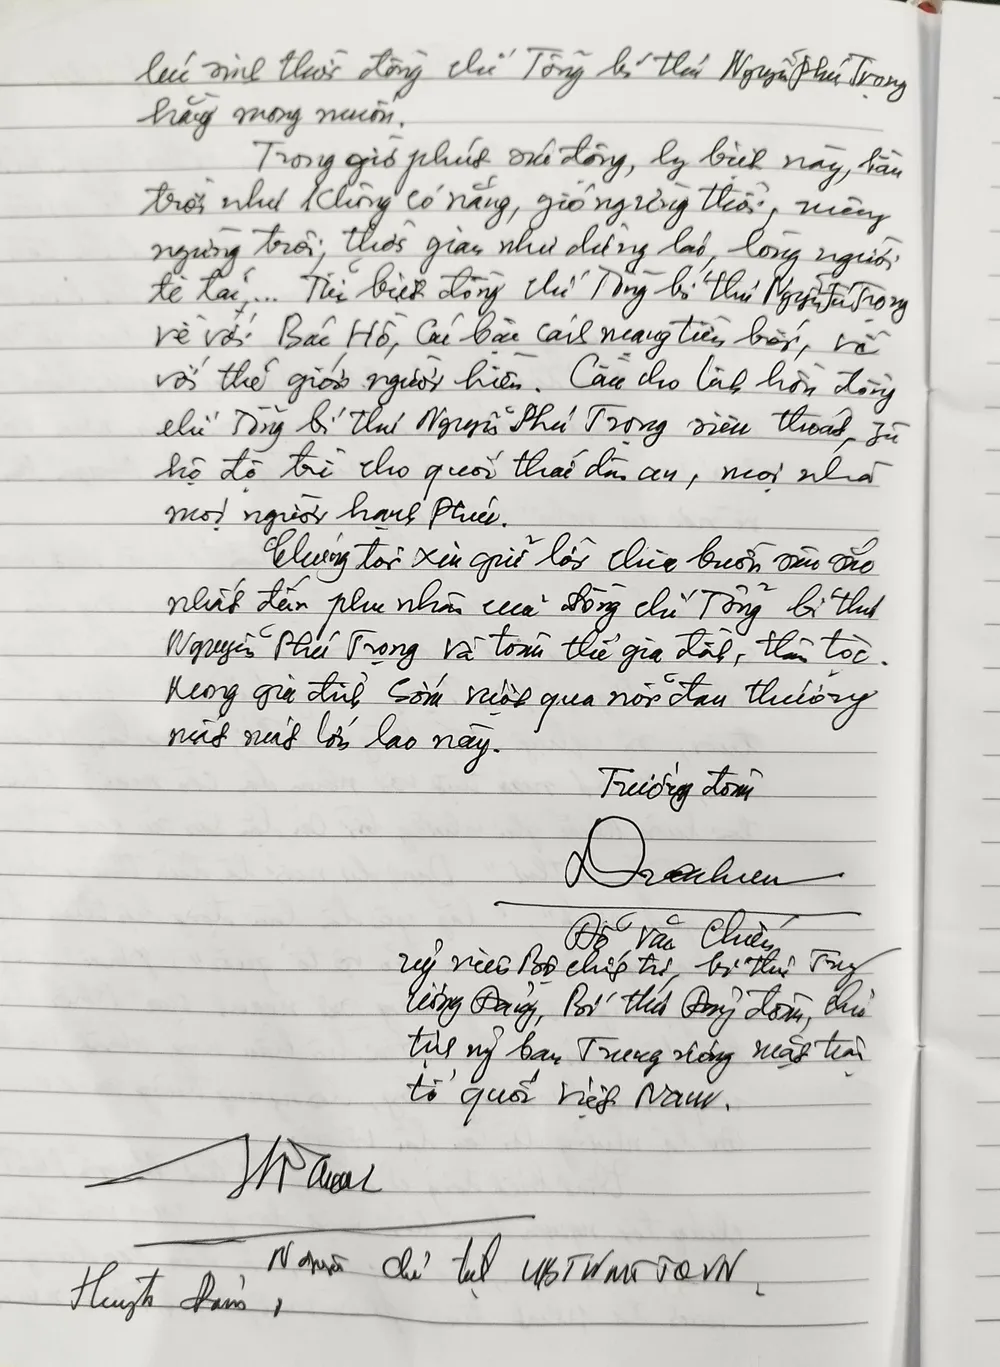 lúc sinh thời đồng chí Tổng bí thư Nguyễn Phú Trọng
hằng mong muốn.
Trong giờ phút xúc động, ly biệt này, bầu
trời như không có nắng, gió ngừng thổi, mây
ngừng trôi, thời gian như dừng lại, lòng người
tê tái,... Tiễn biệt đồng chí Tổng bí thư Nguyễn Phú Trọng
về với Bác Hồ, các bậc cách mạng tiền bối, về
với thế giới người hiền. Cầu cho linh hồn đồng
chí Tổng bí thư Nguyễn Phú Trọng siêu thoát, phù
hộ độ trì cho quốc thái dân an, mọi nhà
mọi người hạnh phúc.
Chúng tôi xin gửi lời chia buồn sâu sắc
nhất đến phu nhân của đồng chí Tổng bí thư
Nguyễn Phú Trọng và toàn thể gia đình, thân tộc.
Mong gia đình sớm vượt qua nỗi đau thương
mất mát lớn lao này.
Trưởng đoàn
Đỗ Văn Chiến
Uỷ viên Bộ chính trị, bí thư Trung
ương Đảng, Bí thư Đảng đoàn, chủ
tịch uỷ ban Trung ương mặt trận
tổ quốc Việt Nam.
Nguyên chủ tịch UBTWMTTQVN.
Huỳnh Đảm,